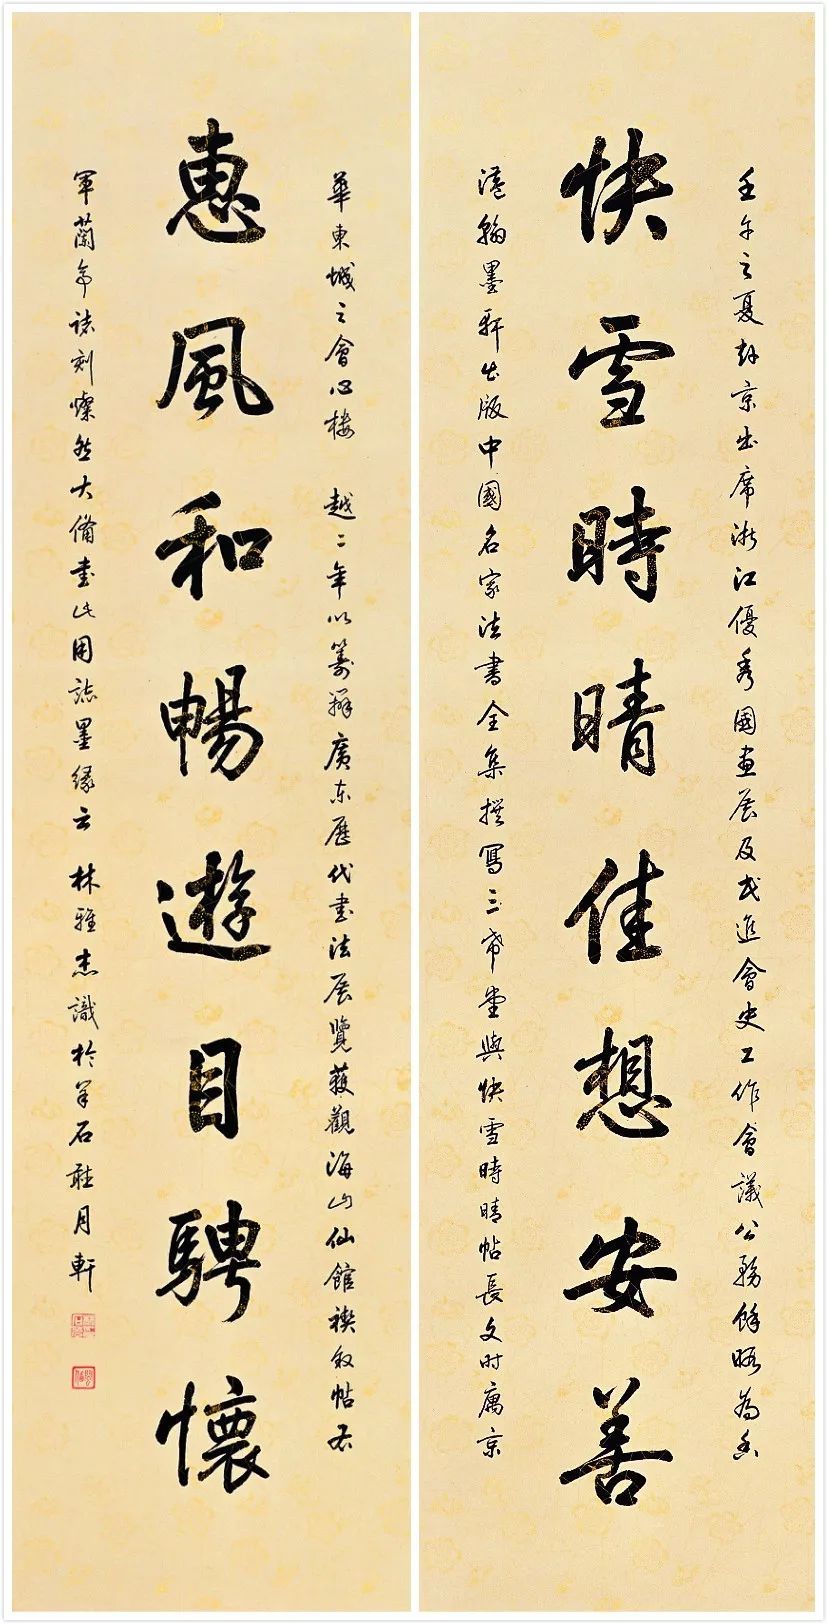 快雪時晴佳想安善
惠風和暢遊目騁懷
壬午之夏赴京出席浙江優秀國畫展及民進會史工作會議公務餘暇為香
港翰墨軒出版中國名家法書全集撰寫三希堂與快雪時晴帖長文时寓京
華東城之會心樓 越二年以籌辦廣东歷代書法展覽獲觀海山仙館禊敘帖右
軍蘭亭諸刻燦然大備書此用誌墨緣云 林雅杰識於羊石月軒